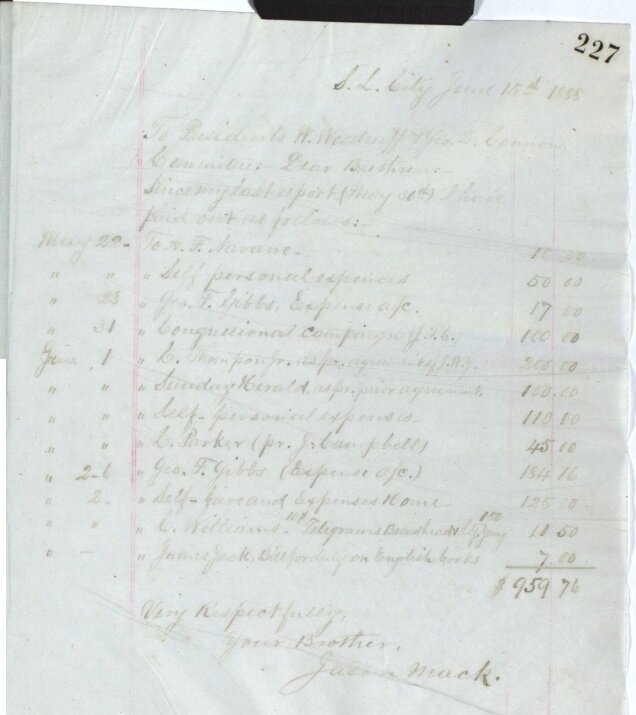 227
S. L. City June 15th 1888
To Presidents W. Woodruff & Geo. Q. Cannon
Committee:- Dear Brethren:-
Since my last report (May 20th) I have
paid out as follows:-
May 22- To A. F. 10 00
" " " Self personal expences 50 00
" 23 " Geo. F. Gibbs, Expense a/c. 17 00
" 31 " Congressional campaign (J. T. C. 100 00
June 1 " L. Thompson Jr. as pr. agreement 200 00
" " " Sunday Herald, as pr. prior agreement. 100 00
" " " Self- personal expenses- 110 00
" " " L. Parker (pr. J. Campbell) 45 00
" 2-6 " Geo. F. Gibbs (Expense a/c.) 184 16
" 2- " Self- fare and Expenses Home- 125 00
" " " C. Williams- Telegrams Broadhead & 11 50
" - " James Jack, Bill for duty on English books 7 00
$959 76
Very Respectfully,
Your Brother,
Jason Mack.